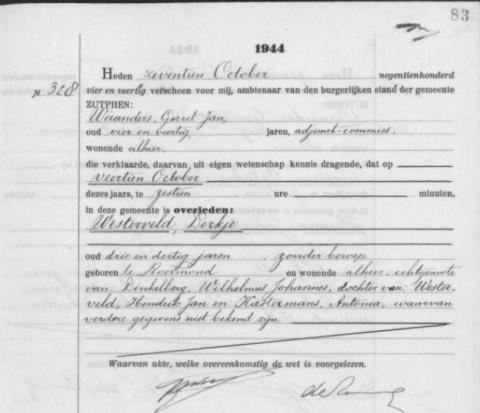 83
1944
Heden zeventien October negentienhonderd
№ 328 vier en veertig verscheen voor mij, ambtenaar van den burgerlijken stand der gemeente
ZUTPHEN:
Waanders, Gerrit Jan,
oud vier en veertig, jaren, adjunct-commies,
wonende alhier,
die verklaarde, daarvan uit eigen wetenschap kennis dragende, dat op
veertien October
dezes jaars, te zestien ure minuten,
in deze gemeente is overleden:
Westerveld, Derkje
oud drie en dertig jaren zonder beroep
geboren te Roermond en wonende alhier, echtgenoote
van Dinkelberg, Wilhelmus Johannes, dochter van Wester-
veld, Hendrik Jan en Kastermans, Antonia, waarvan
verdere gegevens niet bekend zijn
Waarvan akte, welke overeenkomstig de wet is voorgelezen.